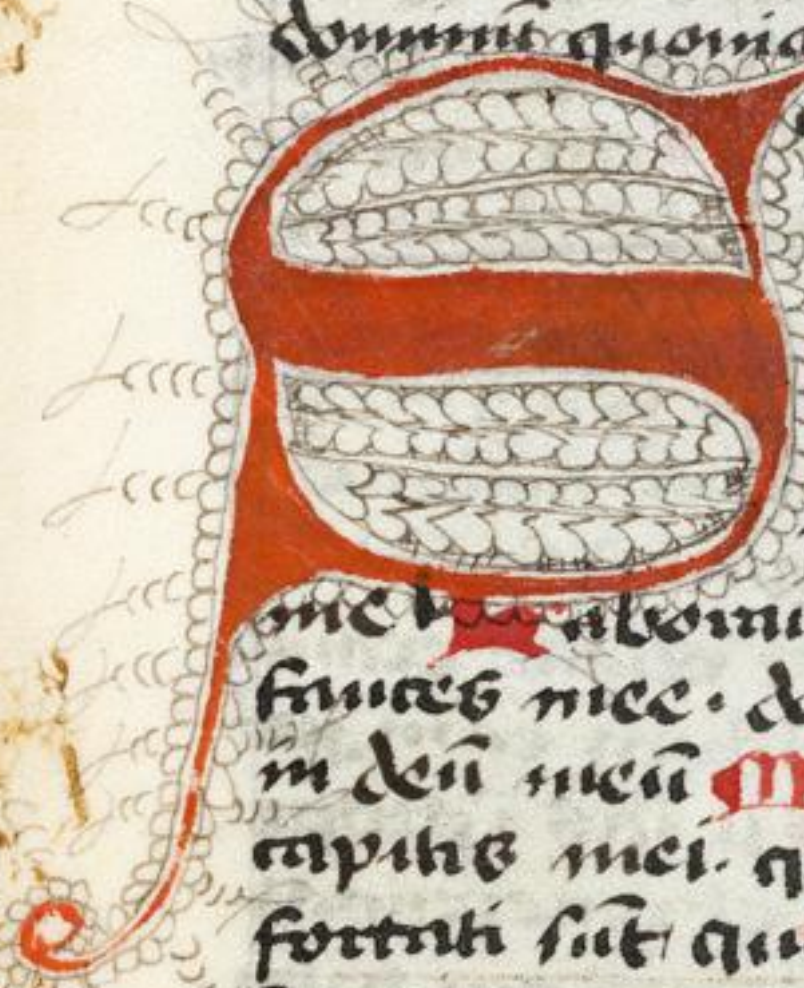 dominū quonia
S
me Labora
fauces mee. de
in deū meū M
capitis mei. q
fortati sūt qu